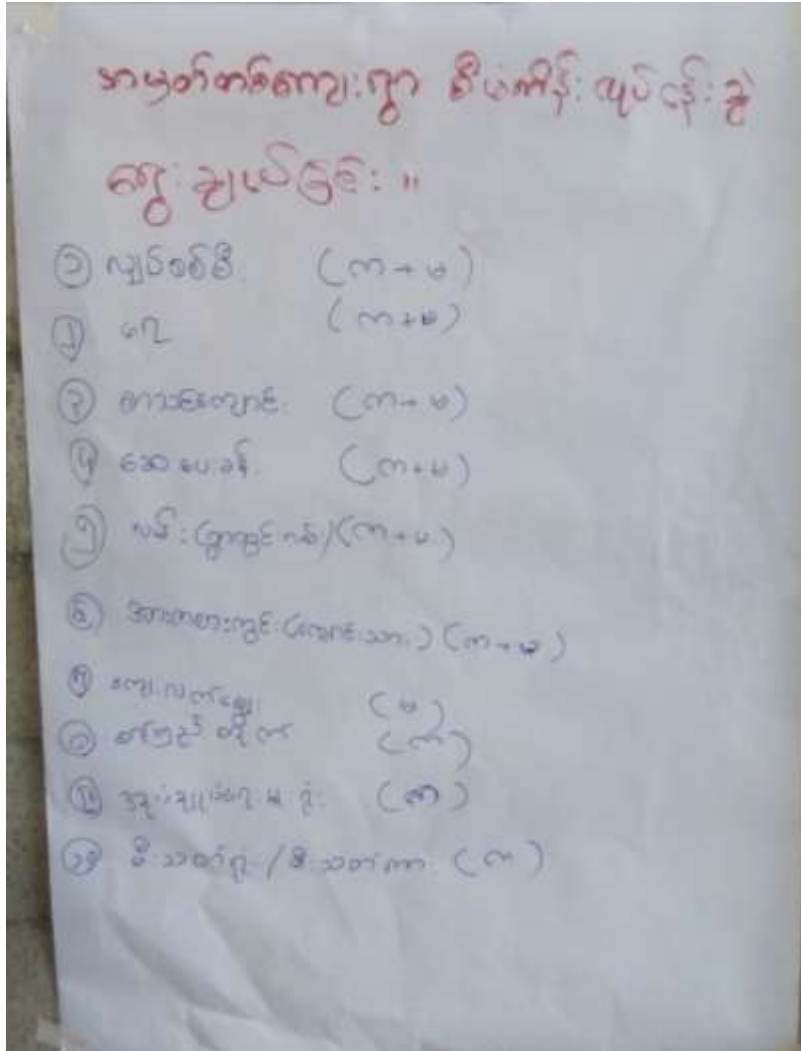 အမှတ်တစ်ကျေးရွာ စီမံကိန်းလုပ်ငန်းခွဲ
ရွေးချယ်ခြင်း။
၁ လျှပ်စစ်မီး (ကာ+မ)
၂ ရေ (ကာ+မ)
၃ စာသင်ကျောင်း (ကာ+မ)
၄ ဆေးပေးခန်း (ကာ+မ)
၅ လမ်း (ရွာတွင်း) (ကာ+မ)
၆ အားကစားကွင်း (ကျောင်းသား) (ကာ+မ)
၇ ကျေးလက်ဈေး (မ)
၈ စာကြည့်တိုက် (ကာ)
၉ အုပ်ချုပ်ရေးမှူးရုံး (ကာ)
၁၀ မီးသတ်ရုံး/မီးသတ်ကား (ကာ)